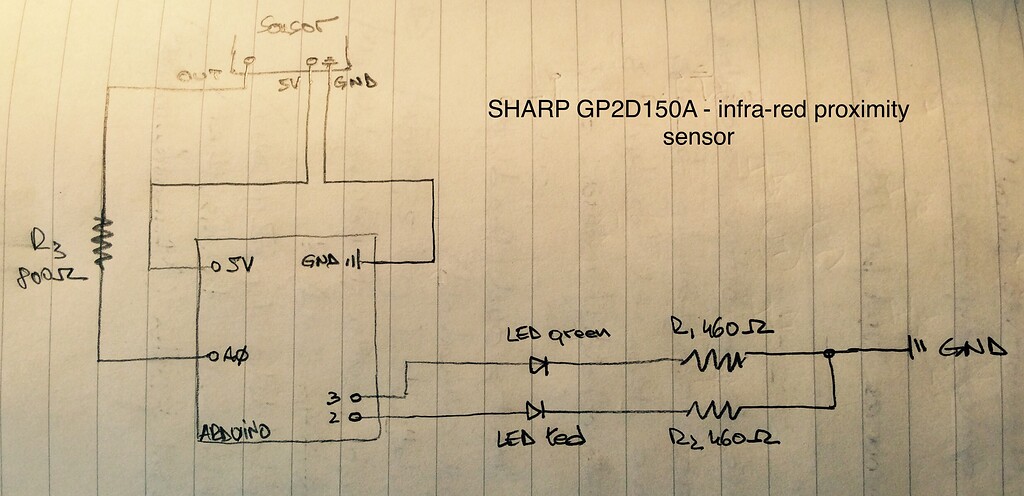 Sensor
OUT
5V
GND
SHARP GP2D150A - infra-red proximity
sensor
R3
800Ω
5V
GND
A0
LED green
R1 460Ω
GND
3
2
ARDUINO
LED red
R2 460Ω